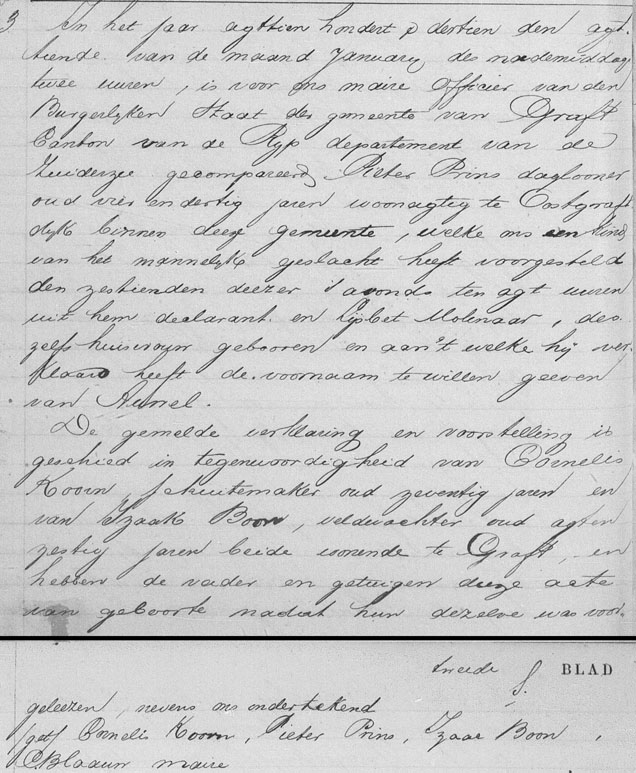 3 In het jaar agttien hondert & dertien den agt-
tiende van de maand January des nademiddag
twee uuren, is voor ons maire officier van den
Burgerlyken Staat der gemeente van Graft
Canton van de Ryp departement van de
Zuiderzee gecompareerd Pieter Prins daglooner
oud vier en dertig jaren woonagtig te Oostgraft
dyk binnen deze gemeente, welke ons een kind
van het mannelyk geslacht heeft voorgesteld
den zestienden deezer 's avonds ten agt uuren
uit hem declarant en Lysbet Molenaar, des-
zelfs huisvrouw gebooren en aan 't welke hij ver-
klaard heeft de voornaam te willen geeven
van
De gemelde verklaring en voorstelling is
geschied in tegenwoordigheid van Cornelis
Koorn, schuitemaker oud zeventig jaren en
van Izaak Boon, veldwachter oud agten
zestig jaren beide wonende te Graft, en
hebben de vader en getuigen deeze acte
van geboorte nadat hun dezelve was voor-
tweede BLAD
geleezen, nevens ons ondertekend
(get) Cornelis Koorn, Pieter Prins, Izaac Boon,
C Blaauw maire